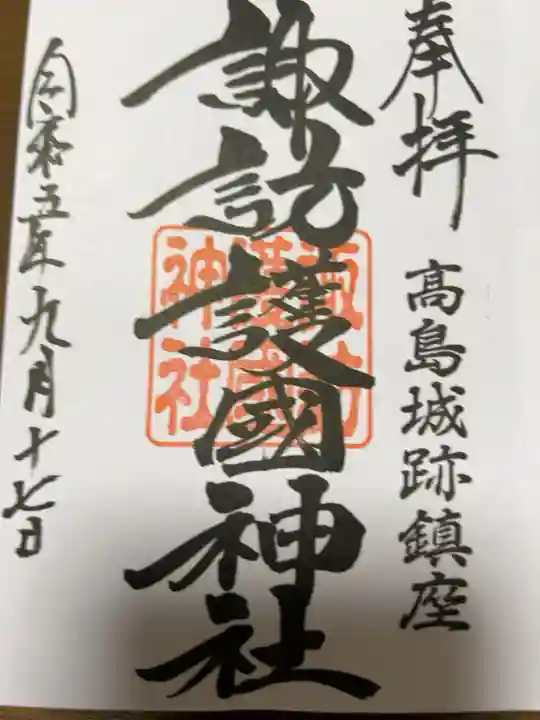 奉拝
高島城跡鎮座
諏訪護國神社
諏訪
護國
神社
令和五年九月十七日